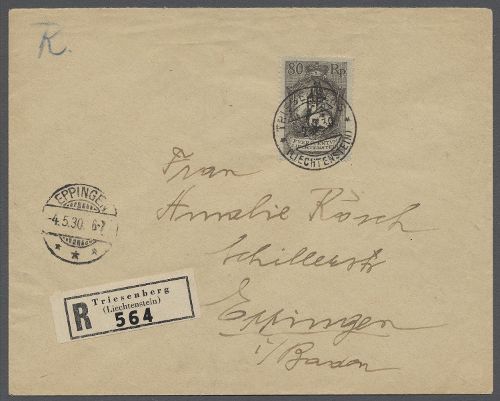 R.
80 Rp.
TRIESENBERG
(LIECHTENSTEIN)
Frau
Amalie Rösch
Schillerstr
Eppingen
i/Baden
EPPINGEN
-4.5.30. 6-7
R
Triesenberg
(Liechtenstein)
564